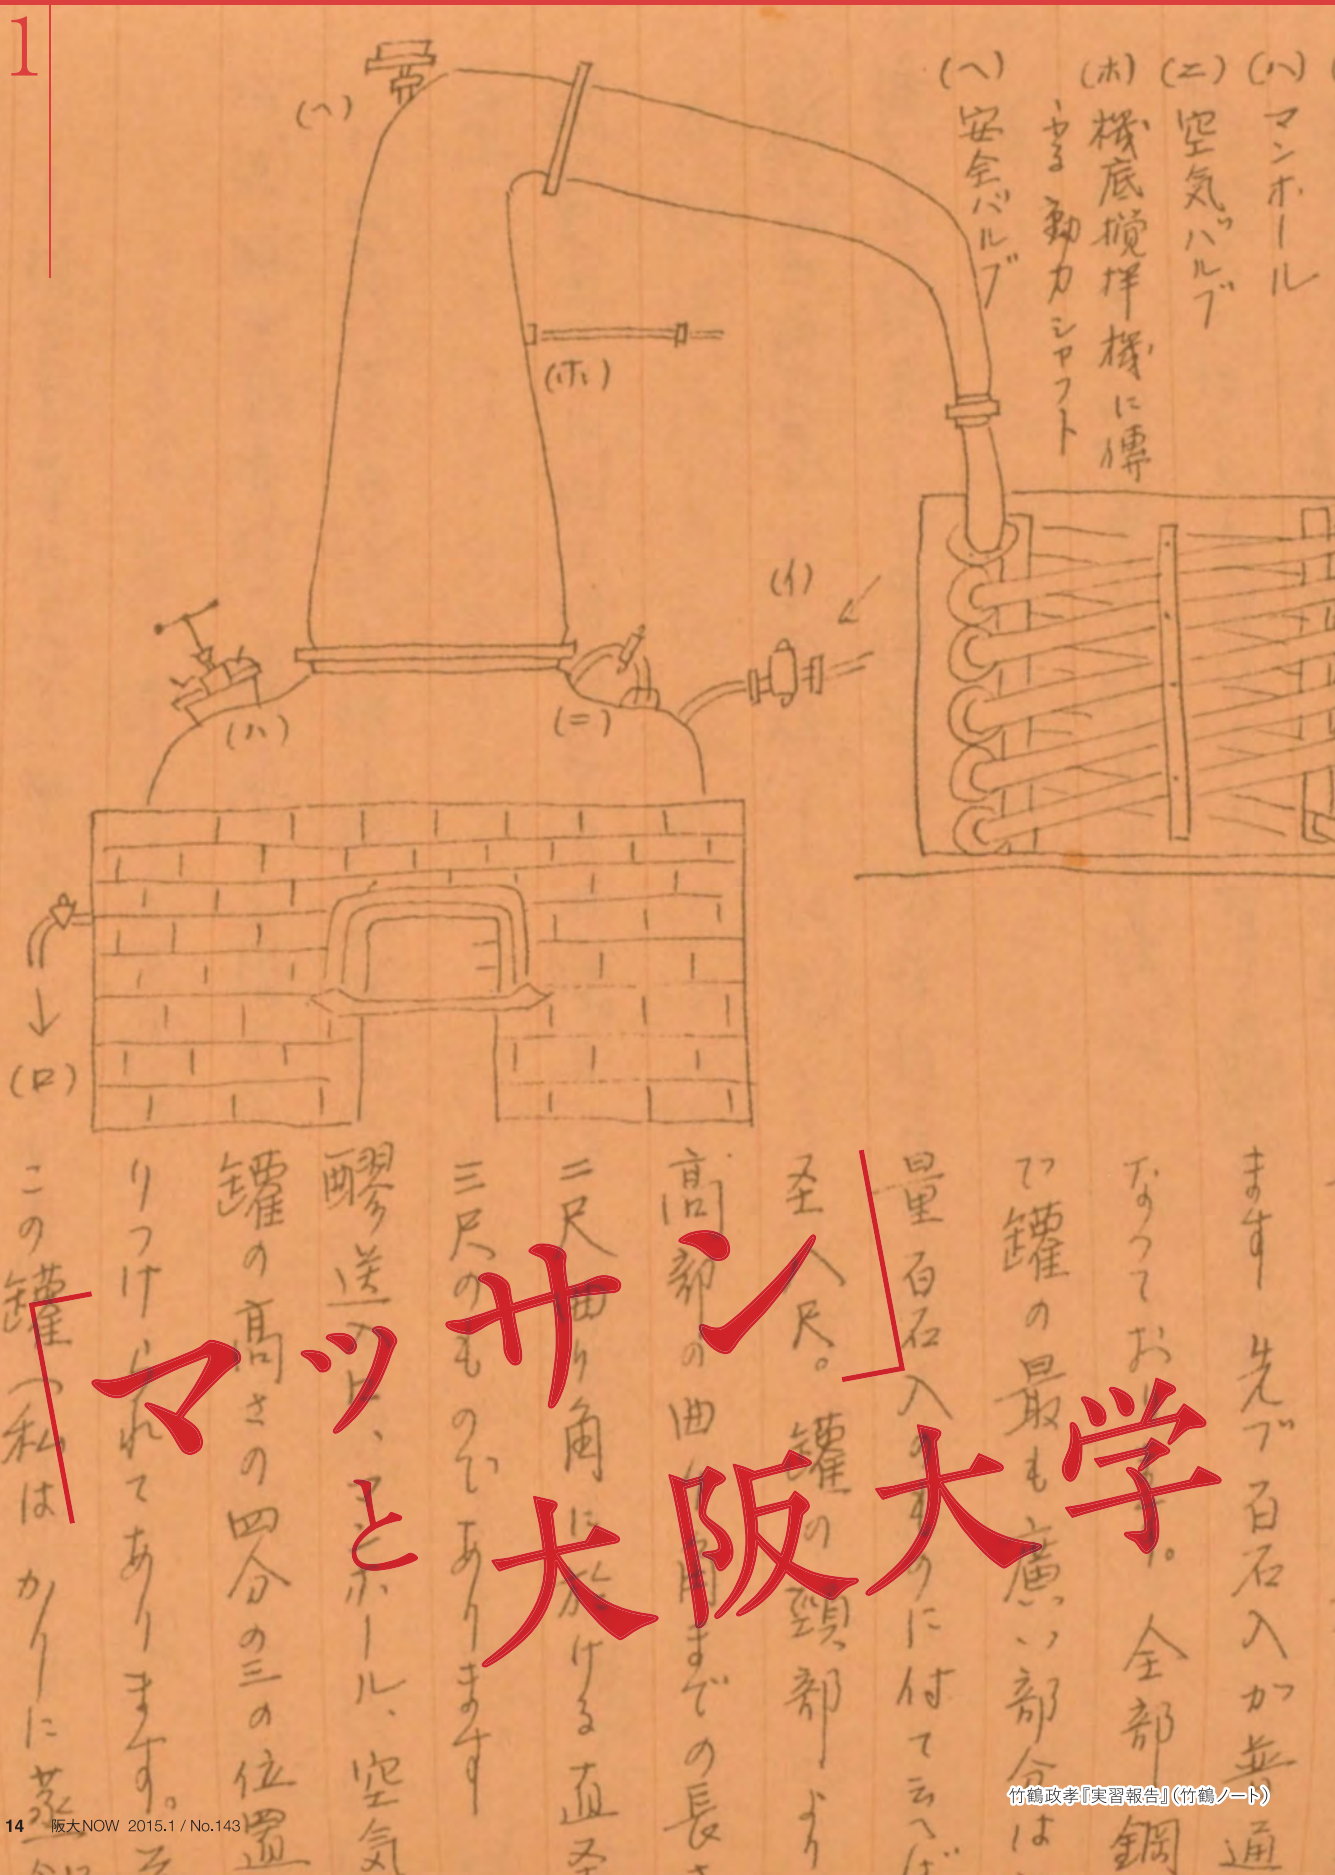 1
(ハ) マンホール
(ニ) 空気バルブ
(ホ) 機底攪拌機に傳
ふる動力シャフト
(ヘ) 安全バルブ
(ヘ)
(ホ)
(イ)
(ハ)
(ニ)
(ロ)
ます 先づ百石入が普通
なつており 全部 鋼
で罐の最も廣い部分は
量百石入のものに付て云へば
八尺。罐の頸部より
高部の曲り角までの長さ
二尺 曲り角に於ける直
三尺のものであります
醪送入口、マンホール、空気
罐の高さの四分の三の位置
りつけられてあります。
この罐へ私はかりに蒸
「マッサン」
と大阪大学
竹鶴政孝『実習報告』(竹鶴ノート)
14 阪大NOW 2015.1 / No.143